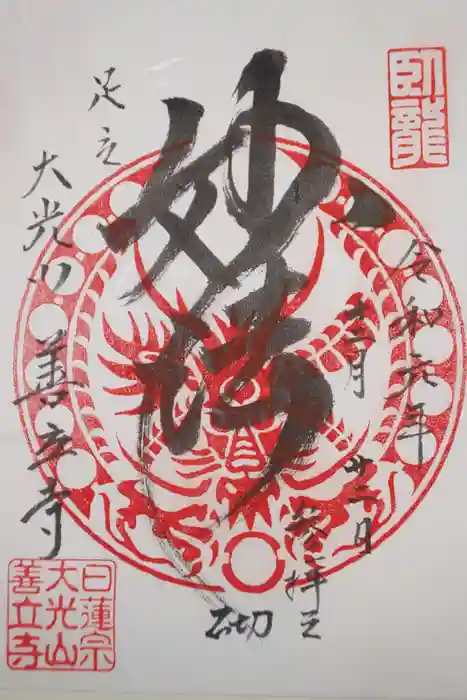 臥龍
令和元年
十二月
廿二日
参拝之
砌
妙法
足立
大光山
善立寺
日蓮宗
大光山
善立寺